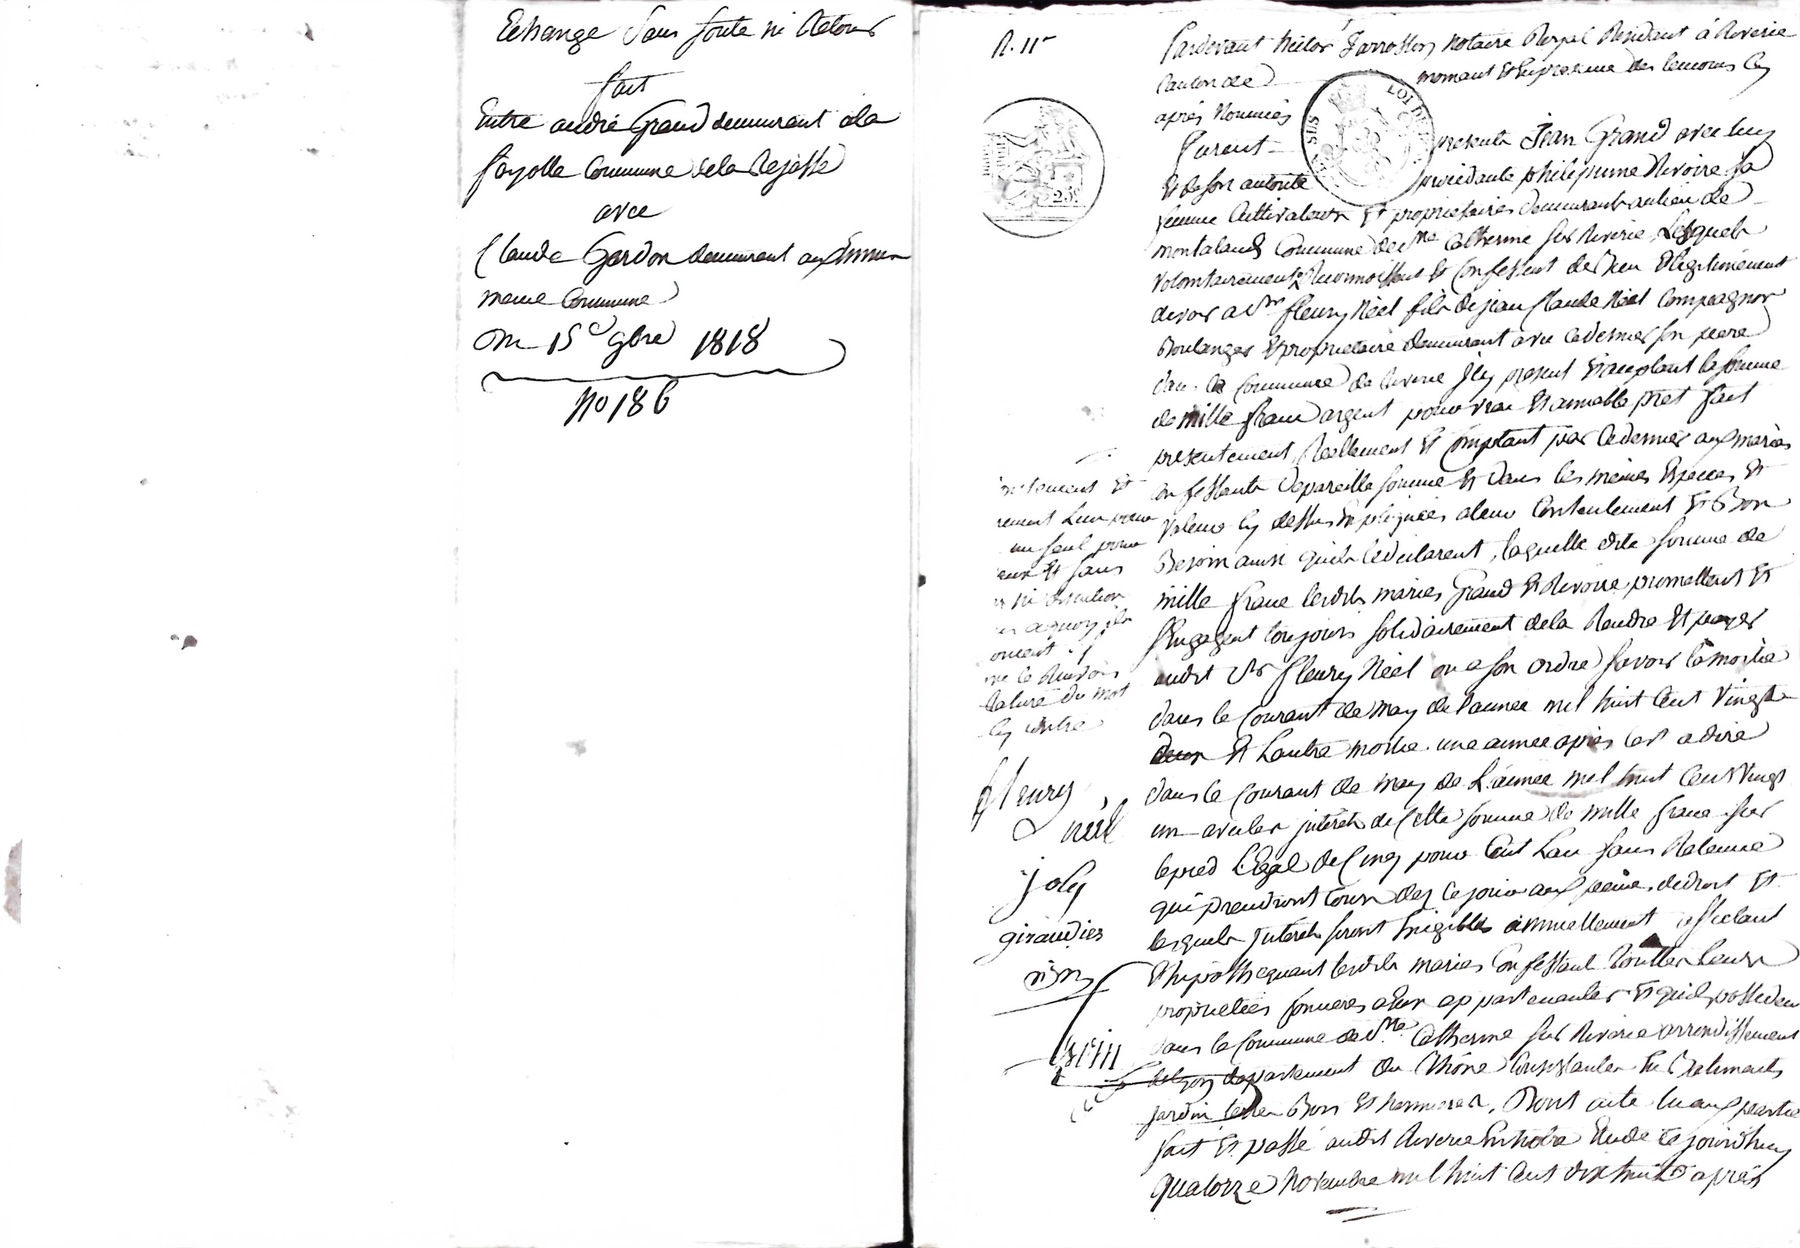 Echange Sans soute ni Retour
fait
Entre andré Grand demeurant ala
fayolle Commune de la Rejasse
avec
Claude Gardon demeurant
meme Commune
Du 15e 9bre 1818
No 186
R. 11
Pardevant hictor notaire Royal Résidant à Riverie
Canton de mornant Et En presence des temoins Cy
après Nommés
furent presents Jean Grand avec luy
Et de son autorité procédante philipinne Rivoire sa
femme Cultivateurs Et propriétaires demeurant au lieu de
montaland Commune de Ste Catherine sur Riverie, Lesquels
volontairement Reconnoissent Et Confessent de bien Et légitimement
devoir a Sr fleury Néel fils de jean Claude Néel Compagnon
Boulanger Et propriétaire demeurant avec ce dernier son pere
Commune de Riverie Icy present Et acceptant la somme
de mille franc argent pour vrai Et amiable pret fait
presentement, Réellement Et Comptant par ce dernier aux mariés
Confessants de pareille somme Et dans les mêmes Especes Et
valeurs Cy dessus Expliquées a leur Contentement Et Bon
Besoin ainsi quils le déclarent, laquelle dite somme de
mille franc lesdits mariés Grand Et Rivoire promettent Et
s'Engagent toujours solidairement de la Rendre Et payer
audit Sr fleury Néel ou a son ordre savoir la moitié
dans le Courant de may de l'année mil huit Cent vingt
Et Lautre moitié une année après Cest a dire
dans le Courant de may de L'année mil huit Cent vingt
un avec les jnterets de Cette somme de mille franc sur
le pied Légal de Cinq pour Cent Lan sans Retenue
qui prendront Cours dez ce jour aux peine de droit Et
lesquels Jnterets seront Exigibles annuellement affectant
Et hipothequant lesdits mariés Confessants touttes Leurs
propriétées foncieres a Eux appartenantes Et quils possedent
dans la Commune de Ste Catherine sur Riverie arrondissement
de Lyon département du Rhône Consistantes En Batiments
jardin terres Bois Et hermieres, Dont acte lu aux parties
fait Et passé audit Riverie En notre Etude ce jourdhuy
quatorze Novembre mil huit Cent dix huit après
LOI DE
25c
ement Et
rement L'un pour
un seul pour
eux Et sans
ni discution
a quoy ils
oncent
le Renvois
Rature du mot
Cy contre
fleury
néel
joly
giraudier